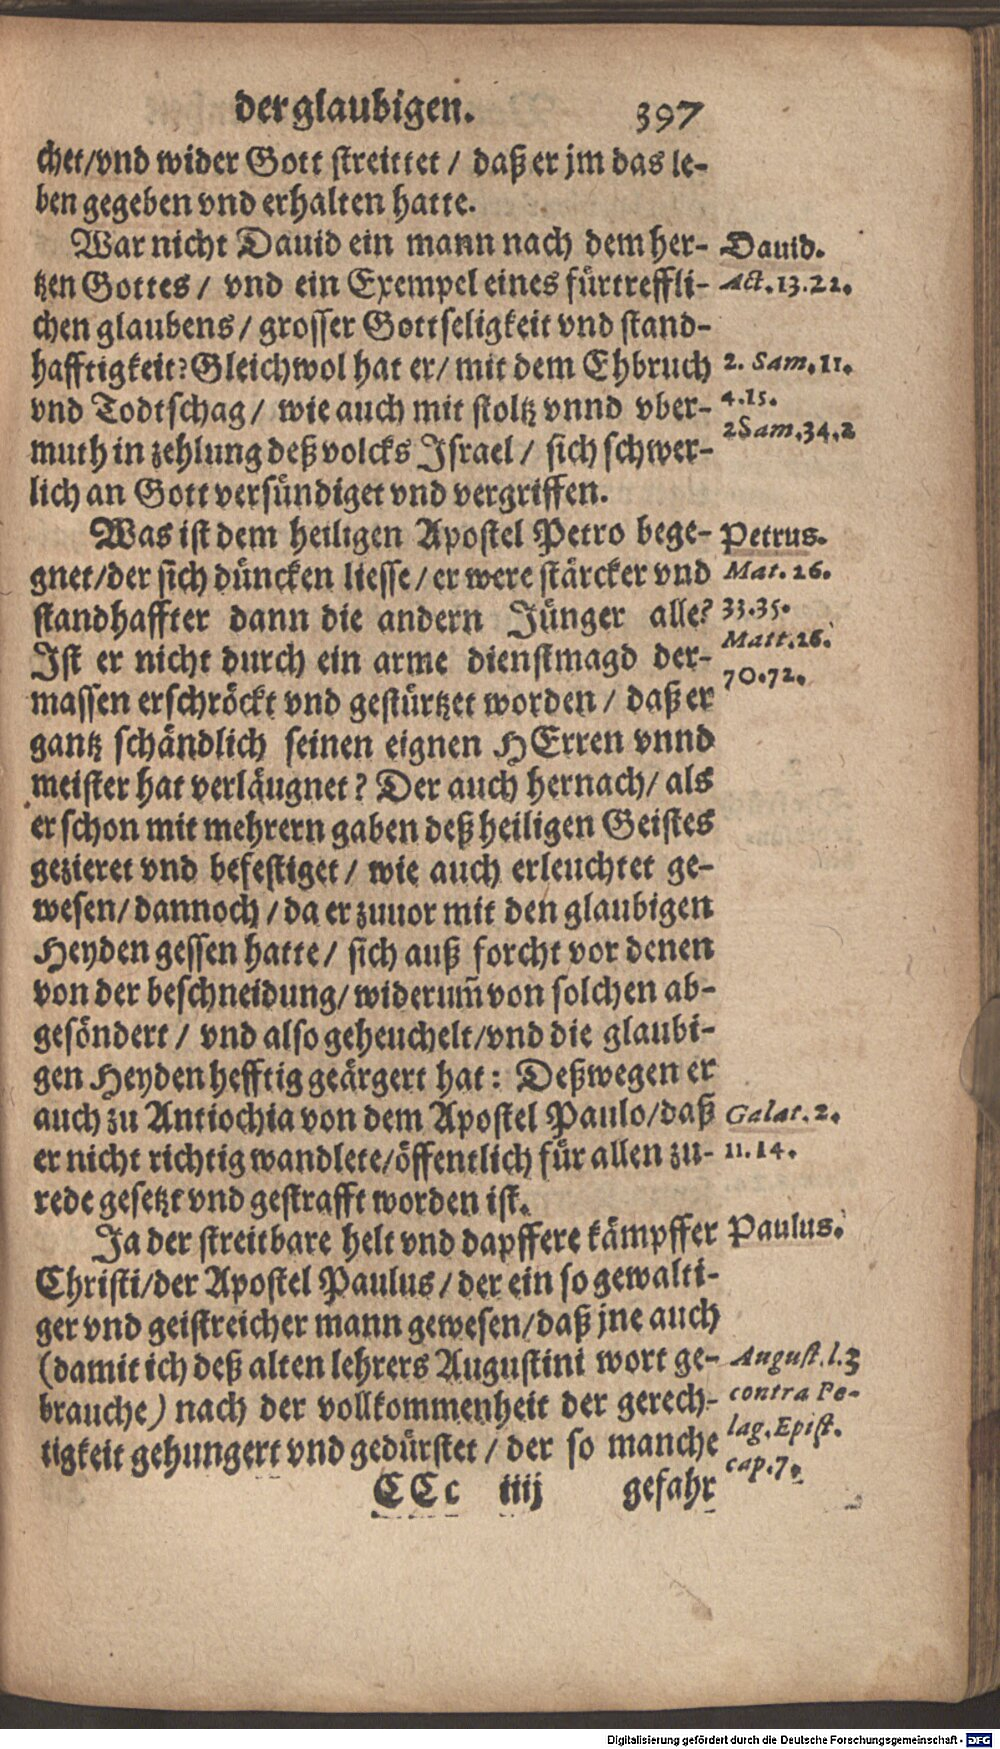 der glaubigen. 397
chet/vnd wider Gott streittet / daß er jm das le-
ben gegeben vnd erhalten hatte.
War nicht Dauid ein mann nach dem her-
tzen Gottes / vnd ein Exempel eines fürtreffli-
chen glaubens / grosser Gottseligkeit vnd stand-
hafftigkeit? Gleichwol hat er / mit dem Ehbruch
vnd Todtschag / wie auch mit stoltz vnnd vber-
muth in zehlung deß volcks Israel / sich schwer-
lich an Gott versündiget vnd vergriffen.
Was ist dem heiligen Apostel Petro bege-
gnet/der sich düncken liesse / er were stärcker vnd
standhaffter dann die andern Jünger alle?
Ist er nicht durch ein arme dienstmagd der-
massen erschröckt vnd gestürtzet worden / daß er
gantz schändlich seinen eignen HErren vnnd
meister hat verläugnet? Der auch hernach / als
er schon mit mehrern gaben deß heiligen Geistes
gezieret vnd befestiget / wie auch erleuchtet ge-
wesen / dannoch / da er zuuor mit den glaubigen
Heyden gessen hatte / sich auß forcht vor denen
von der beschneidung / widerum̃ von solchen ab-
gesöndert / vnd also geheuchelt/vnd die glaubi-
gen Heyden hefftig geärgert hat: Deßwegen er
auch zu Antiochia von dem Apostel Paulo/daß
er nicht richtig wandlete/öffentlich für allen zu-
rede gesetzt vnd gestrafft worden ist.
Ja der streitbare helt vnd dapffere kämpffer
Christi/der Apostel Paulus / der ein so gewalti-
ger vnd geistreicher mann gewesen/daß jne auch
(damit ich deß alten lehrers Augustini wort ge-
brauche) nach der vollkommenheit der gerech-
tigkeit gehungert vnd gedürstet / der so manche
CCc iiij gefahr
Dauid.
Act. 13.22.
2. Sam. 11.
4.15.
2Sam. 34.2
Petrus.
Mat. 26.
33.35.
Matt. 26.
70.72.
Galat. 2.
11.14.
Paulus.
August. l.3
contra Pe-
lag. Epist.
cap. 7.
Digitalisierung gefördert durch die Deutsche Forschungsgemeinschaft - DFG